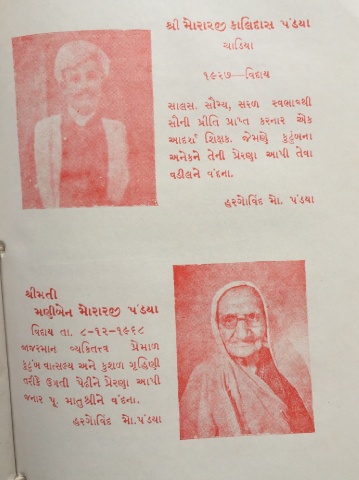 શ્રી મોરારજી કાલિદાસ પંડયા
ચાડિયા
૧૯૨૭—વિદાય
સાલસ. સૌમ્ય, સરળ સ્વભાવથી
સૌની પ્રીતિ પ્રાપ્ત કરનાર એક
આદર્શ શિક્ષક. જેમણે કુટુંબના
અનેકને તેની પ્રેરણા આપી તેવા
વડીલને વંદના.
હરગોવિંદ મો. પંડયા
શ્રીમતી
મણીબેન મોરારજી પંડયા
વિદાય તા. ૮-૧૨-૧૯૬૮
જાજરમાન વ્યકિતત્વ પ્રેમાળ
કુટુંબ વાત્સલ્ય અને કુશળ ગૃહિણી
તરીકે ઉગતી પેઢીને પ્રેરણા આપી
જનાર પૂ. માતુશ્રીને વંદના.
હરગોવિંદ મો. પંડયા